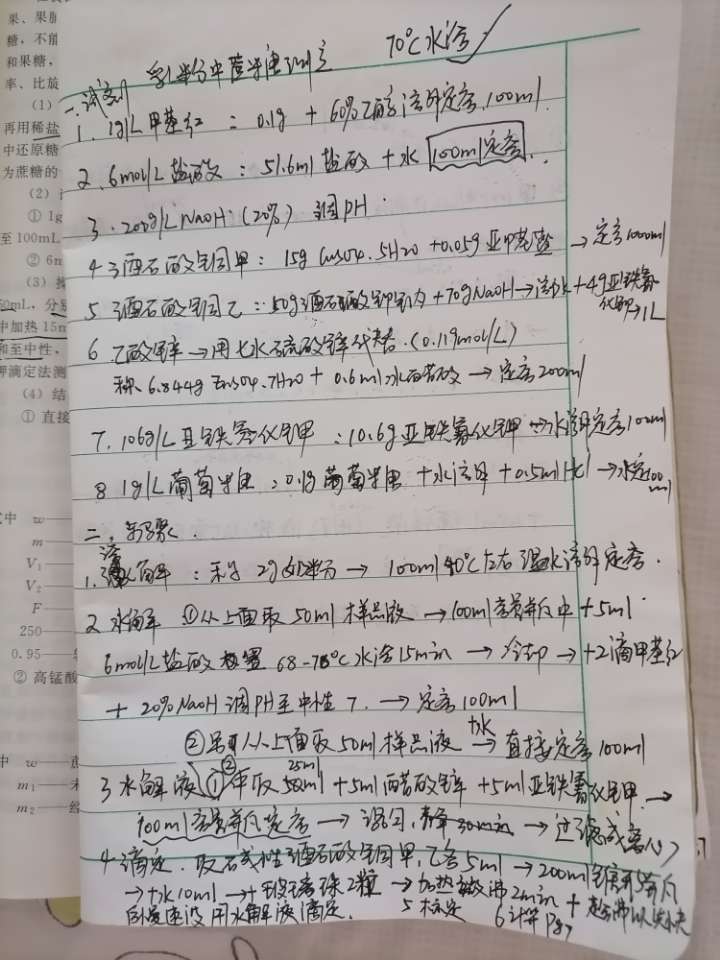 果、果脯
糖，不
和果糖，
率、比旋
(1)
再用稀盐
中还原糖
为蔗糖的
(2)
① 1g
至100mL
② 6m
(3)
50mL，分别
中加热15m
和至中性，
滴定法测
(4) 结
① 直接
式中 w
m
V₁
V₂
F
250
0.95
② 高锰酸
中 w
m₁
m₂
70℃水浴✓
乳粉中蔗糖测定
一.试剂
1. 1g/L甲基红：0.1g + 60%乙醇溶解定容100ml.
2. 6mol/L盐酸：51.6ml盐酸+水 100ml定容.
3. 200g/L NaOH (20%) 调PH.
4 酒石酸铜甲：15g CuSO4.5H2O +0.05g亚甲基蓝 →定容1000ml
5 酒石酸铜乙：50g酒石酸钾钠+70gNaOH→溶水+4g亚铁氰化钾→1L
6 乙酸锌→用七水硫酸锌代替.(0.119mol/L)
称6.844g ZnSO4.7H2O + 0.6ml冰醋酸→定容200ml
7. 106g/L亚铁氰化钾：10.6g亚铁氰化钾→水溶解定容100ml
8 1g/L葡萄糖：0.1g葡萄糖+水溶解+0.5ml Hcl→水定100ml
二.步骤.
1. 溶解：称2g奶粉→100ml 40℃左右温水溶解定容.
2 水解 ①从上面取50ml样品液→100ml容量瓶中+5ml
6mol/L盐酸 置68-70℃水浴15min→冷却→+2滴甲基红
+ 20%NaOH调PH至中性7.→定容100ml
②另从上面取50ml样品液 +水→直接定容100ml
3 水解液①②年取 25ml +5ml醋酸锌+5ml亚铁氰化钾.→
100ml容量瓶定容→混匀,静置30min→过滤或离心
4 滴定.取石或性酒石酸铜甲,乙各5ml→200ml锥形瓶
→+水10ml→+玻璃珠2粒→加热沸2min+趁沸以
速度用水解液滴定. 5 标定 6 计算